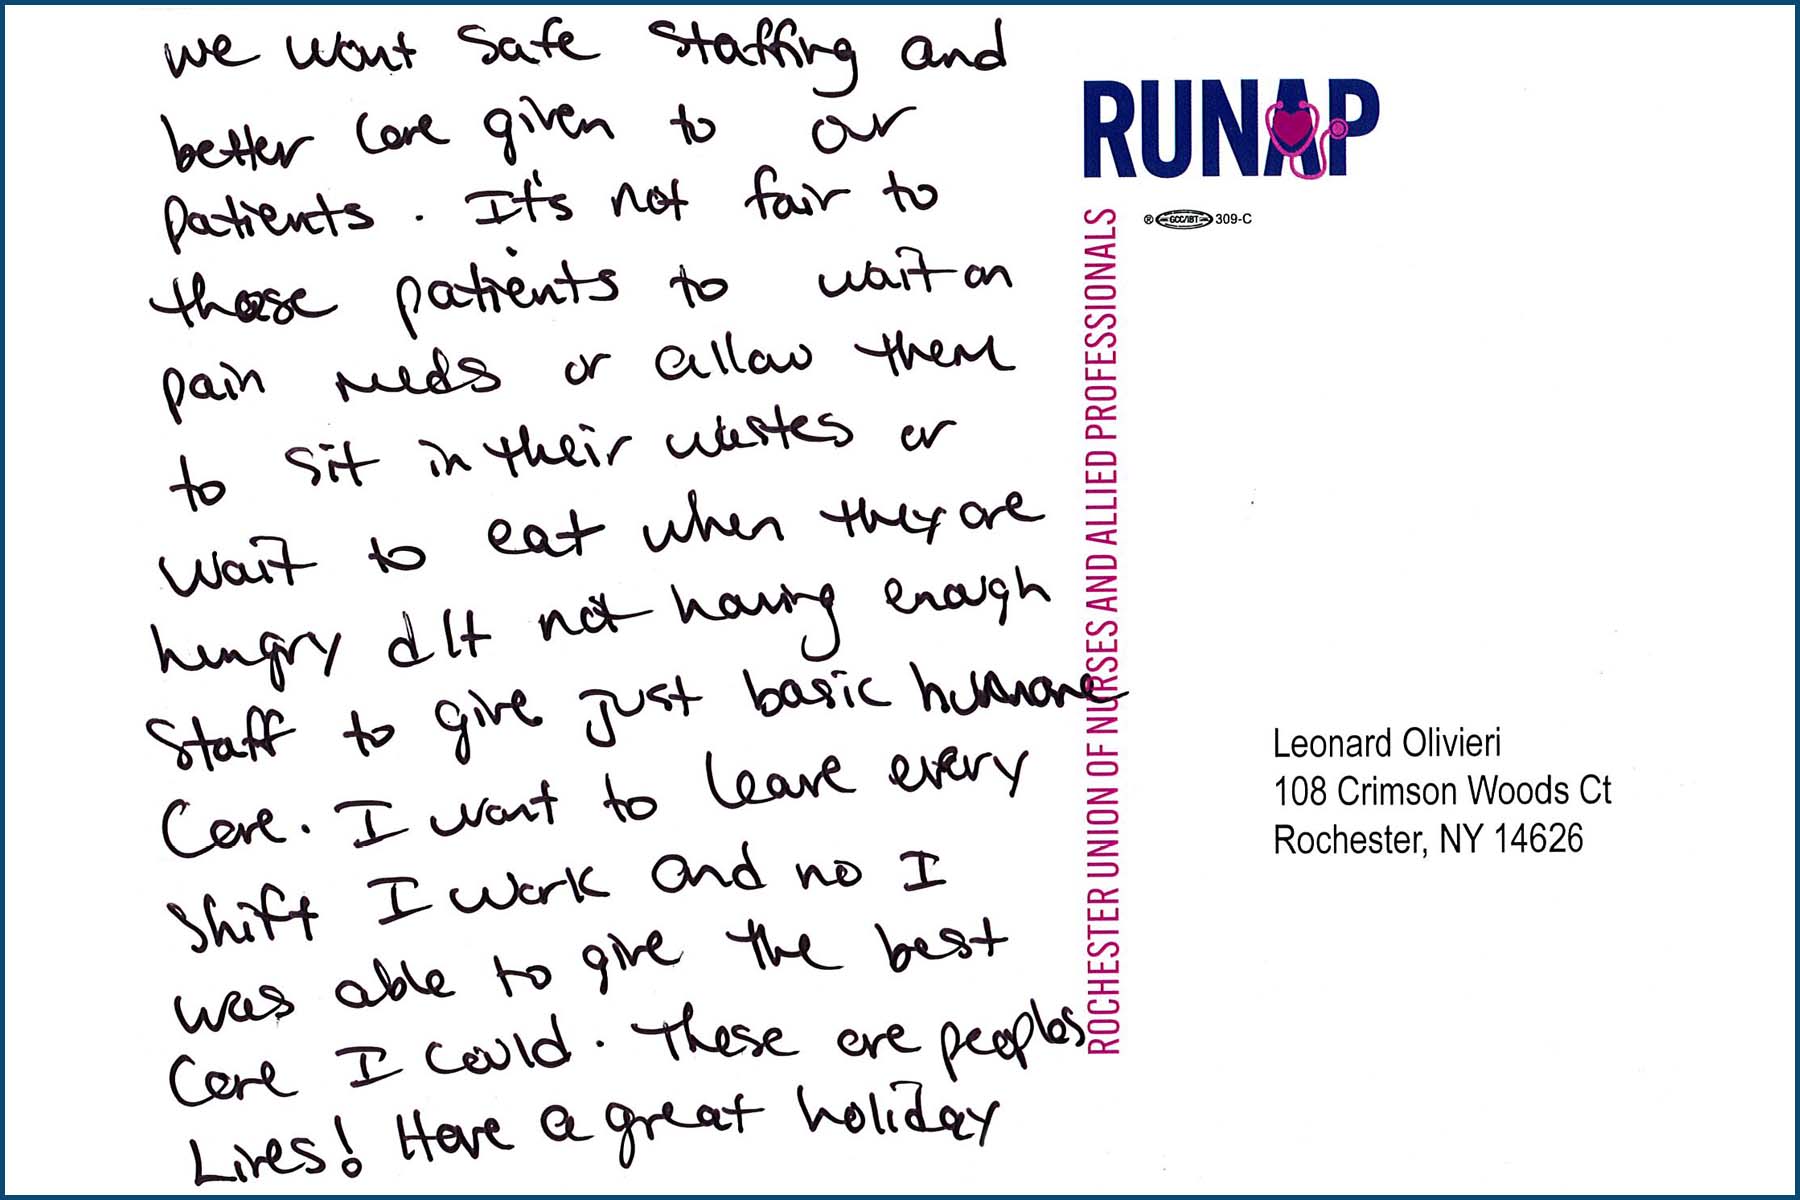 we want safe staffing and
better care given to our
patients. It's not fair to
those patients to wait on
pain needs or allow them
to sit in their wastes or
wait to eat when they are
hungry d/t not having enough
staff to give just basic humane
care. I want to leave every
shift I work and no I
was able to give the best
care I could. These are peoples
Lives! Have a great holiday
RUNAP
® GCC/IBT 309-C
ROCHESTER UNION OF NURSES AND ALLIED PROFESSIONALS
Leonard Olivieri
108 Crimson Woods Ct
Rochester, NY 14626